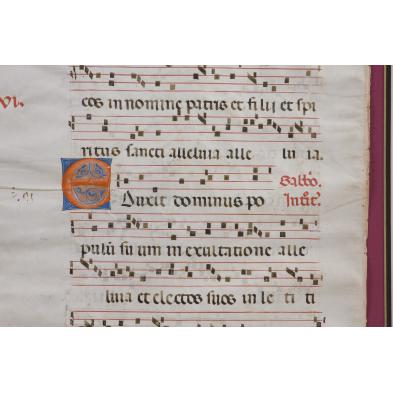 cos in nomine patris et filii et spi
ritus sancti alleluia alle luia.
VI.
Sabbo.
Eduxit dominus po
Introit.
pulū suum in exultatione alle
luia et electos suos in le ti ti